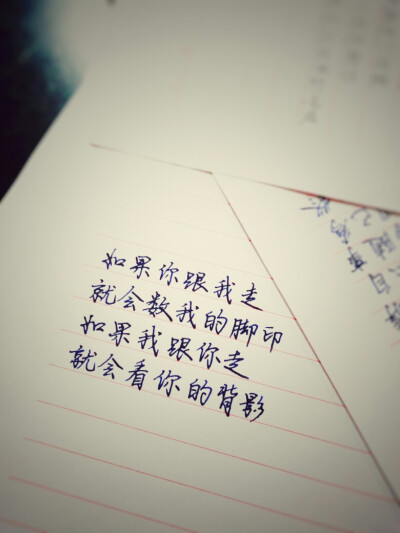 如果你跟我走
就会数我的脚印
如果我跟你走
就会看你的背影